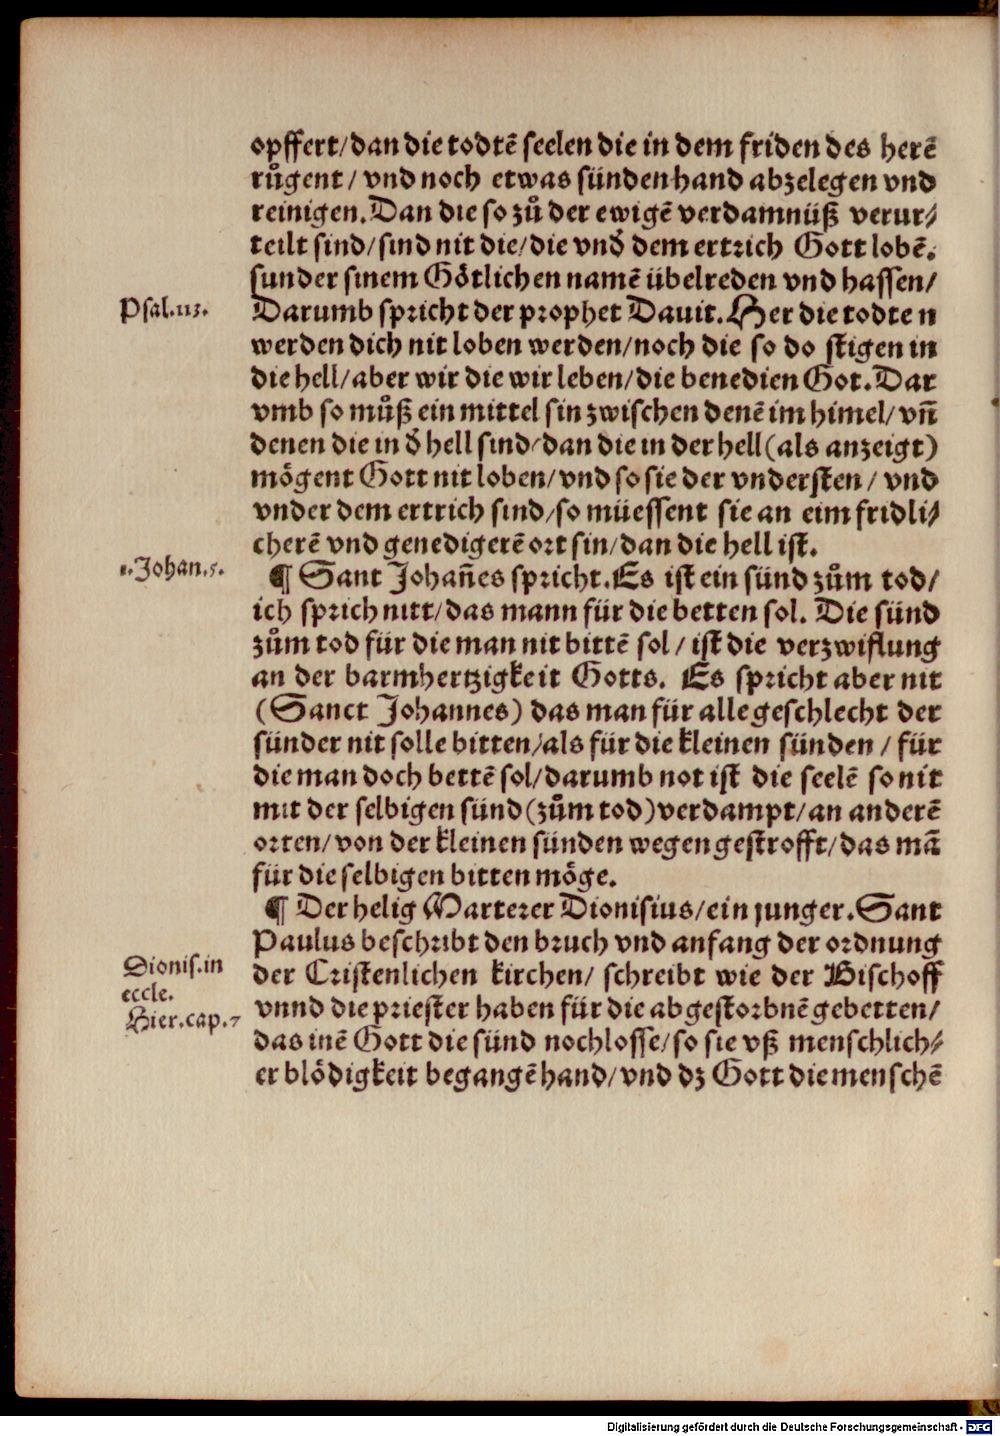 opffert/dan die todtē seelen die in dem friden des herē
růgent/ vnd noch etwas sünden hand abzelegen vnd
reinigen. Dan die so zů der ewigē verdamnüß verur⸗
teilt sind/sind nit die/die vnď dem ertrich Gott lobē.
sunder sinem Götlichen namē übelreden vnd hassen/
Psal.113.
Darumb spricht der prophet Dauit. Her die todten
werden dich nit loben werden/noch die so do stigen in
die hell/aber wir die wir leben/die benedien Got. Dar
vmb so můß ein mittel sin zwischen denē im himel/ vñ
denen die in ď hell sind/dan die in der hell (als anzeigt)
mögent Gott nit loben/vnd so sie der vndersten/ vnd
vnder dem ertrich sind/so müessent sie an eim fridli⸗
cherē vnd genedigerē ort sin/dan die hell ist.
1.Johan.5.
¶ Sant Johañes spricht. Es ist ein sünd zům tod/
ich sprich nitt/das mann für die betten sol. Die sünd
zům tod für die man nit bittē sol/ ist die verzwiflung
an der barmhertzigkeit Gotts. Es spricht aber nit
(Sanct Johannes) das man für alle geschlecht der
sünder nit solle bitten/als für die kleinen sünden / für
die man doch bettē sol/darumb not ist die seelē so nit
mit der selbigen sünd (zům tod) verdampt/an anderē
orten/von der kleinen sünden wegen gestrofft/das mā
für die selbigen bitten möge.
¶ Der helig Marterer Dionisius/ein junger. Sant
Paulus beschribt den bruch vnd anfang der ordnung
Dionis.in
eccle.
Hier.cap.7
der Cristenlichen kirchen/ schreibt wie der Bischoff
vnnd die priester haben für die abgestorbnē gebetten/
das inē Gott die sünd nochlosse/so sie vß menschlich⸗
er blödigkeit begangē hand/vnd dz Gott die menschē
Digitalisierung gefördert durch die Deutsche Forschungsgemeinschaft - DFG